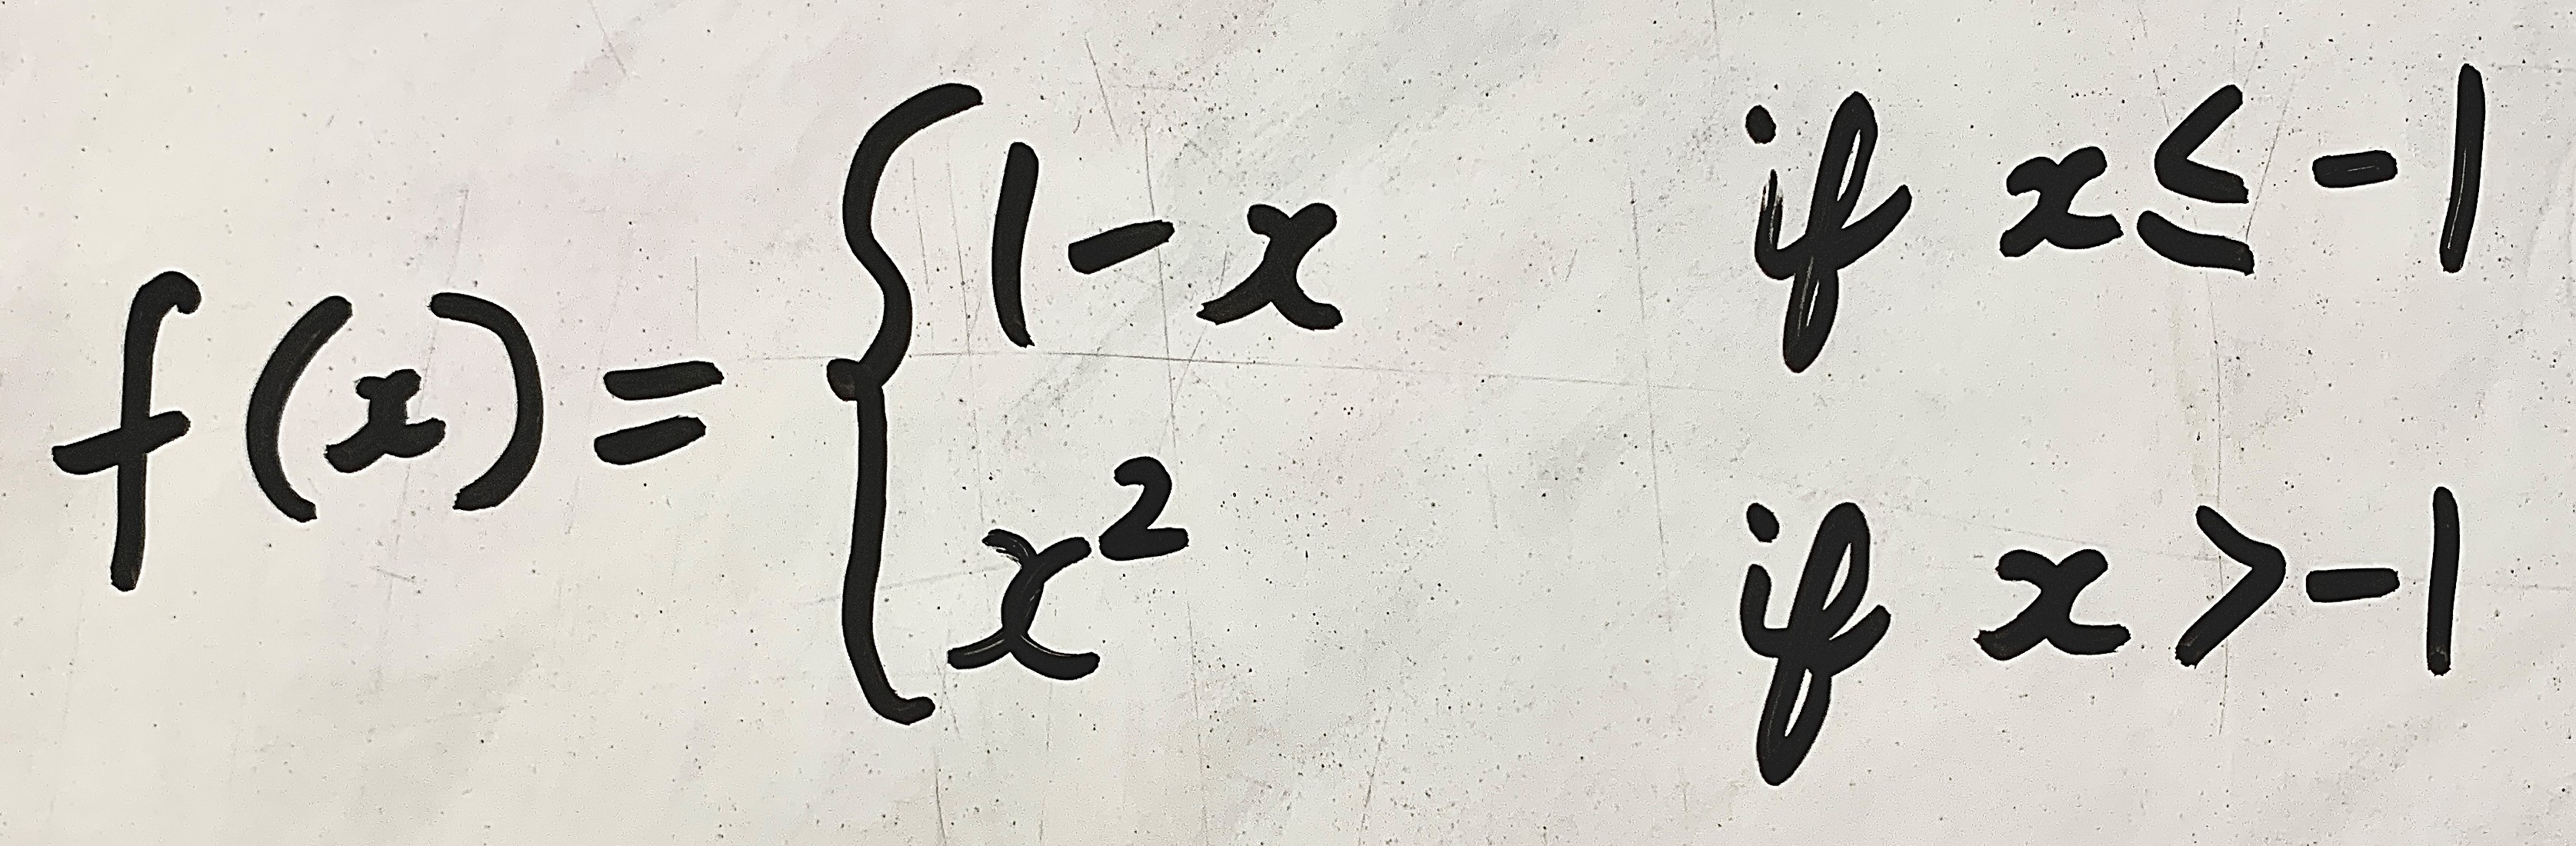 f(x) = { 1 - x if x ≤ -1
x² if x > -1